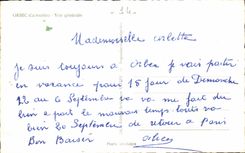 ORBEC (Calvados) - Vue générale
Mademoiselle Arlette
Je suis toujours a Orbec je vais partir
en vacance pour 15 jour de Dimanche
22 au 6 Septembre va me fait du
bien a part le mauvais temps tout va
bien 20 Septembre de retour a Paris
Bon Baiser